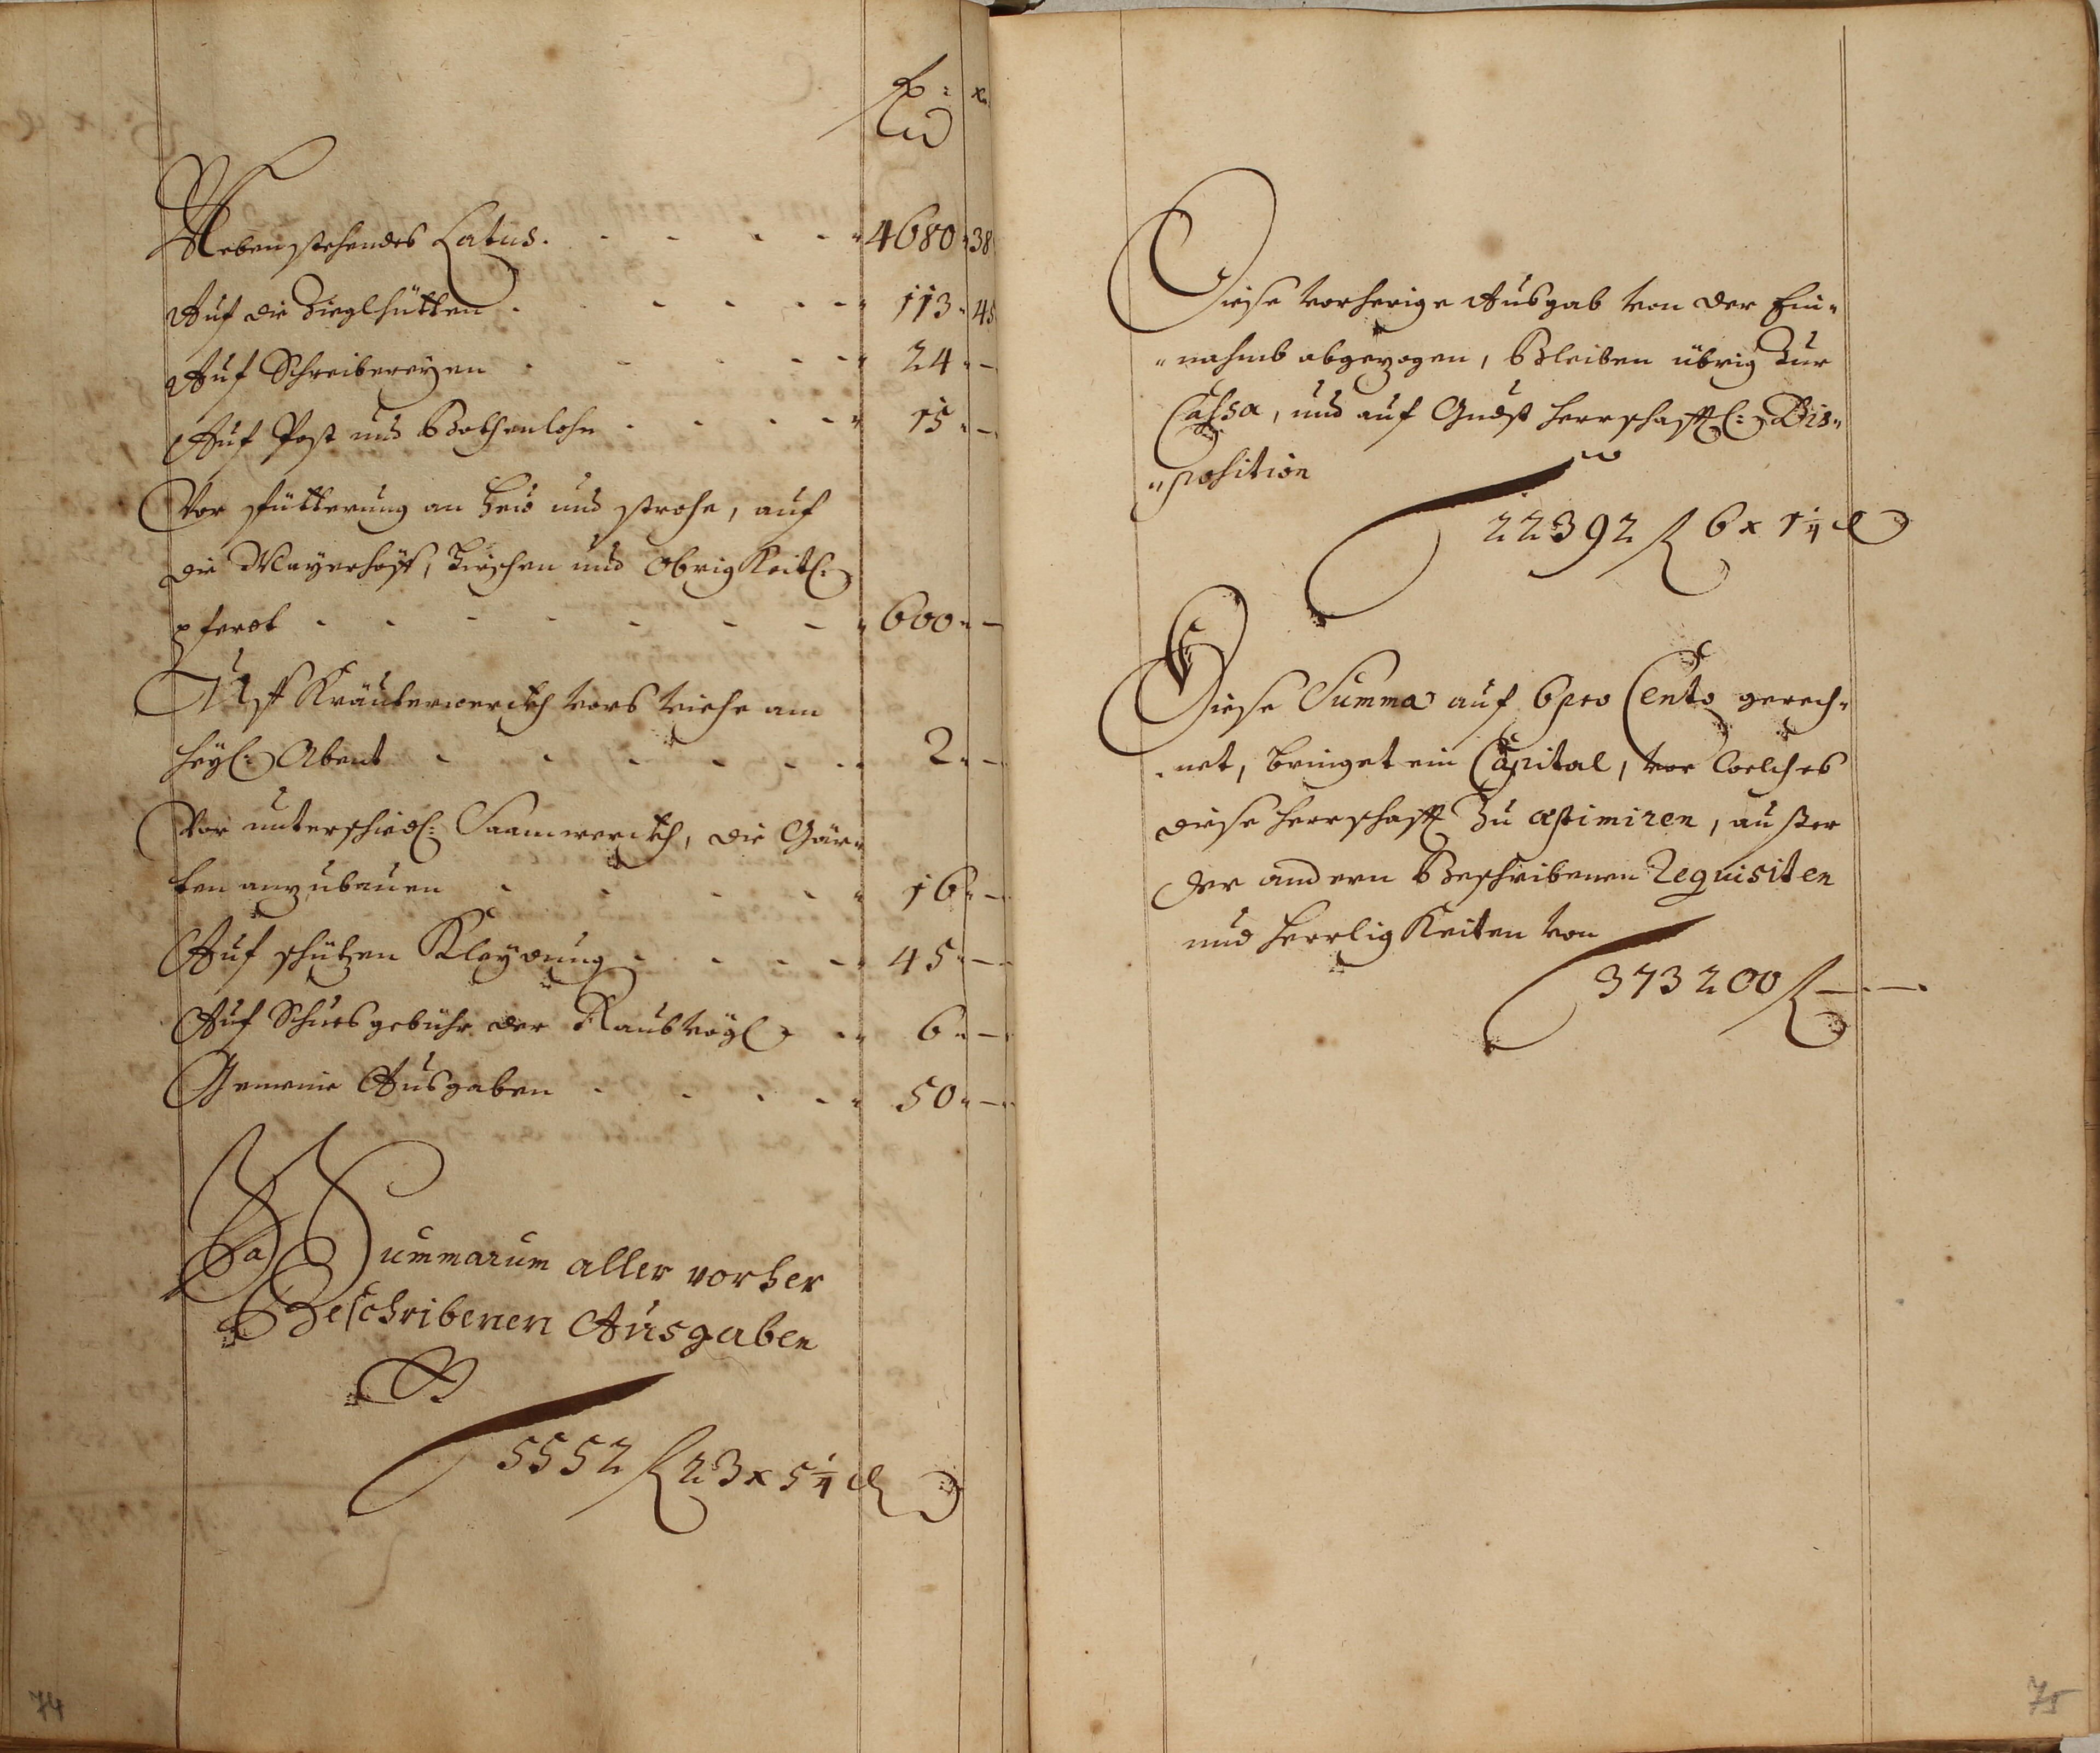 fl: x.
Nebenstehendes Latus. 4680. 38
Auf die Zieglhütten 113. 45
Auf Schreibereyen 24. –
Auf Post und Bothenlohn 15. –
Vor Fütterung an Heü und Strohe, auf
die Mayerhöff, und Obrigkeitl:
Pferdt 600. –
Kräuterwerckh vors Viehe am
Heyl: Abent 2. –
Vor unterschiedl: Saamwerckh, die Gär-
ten anzubauen 16. –
Auf schützen Kleydung 45. –
Auf Schuesgebühr der Raubvögl 6. –
Gemeine Ausgaben 50. –
Summarum aller vorher
Beschribenen Ausgaben
5552 fl 23 x 5 1/4 d
74
Diese vorherige Ausgab von der Ein-
nahmb abgezogen, Bleiben übrig Zur
Cassa, und auf Gnädst herrschafftl: Dis-
position
22392 fl 6 x 1 1/4 d
Diese Summa auf 6 pro Cento gerech-
net, bringet ein Capital, vor welches
diese Herrschafft Zu æstimiren, außer
der andern Beschribenen Requisiten
und Herrligkeiten von
373200 fl – . – .
75